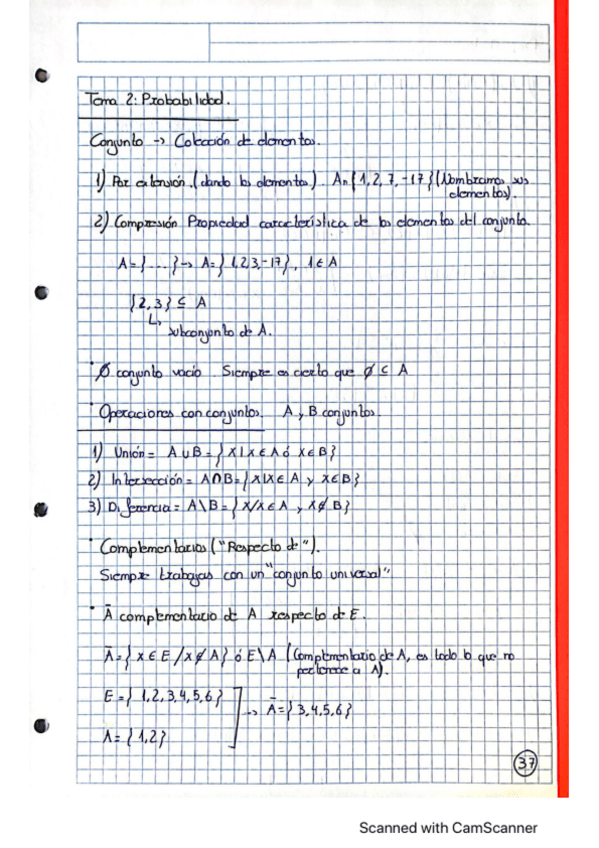 Tema 2: Probabilidad.
Conjunto → Colección de elementos.
1) Por extensión. (dando los elementos). A = {1, 2, 7, -17} (Nombramos sus
elementos).
2) Compresión Propiedad característica de los elementos del conjunto.
A = {....} → A = {1,2,3,-17}, 1 ∈ A
{2,3} ⊆ A
↳ subconjunto de A.
· Ø conjunto vacío Siempre es cierto que Ø ⊆ A
· Operaciones con conjuntos. A y B conjuntos.
1) Unión = A ∪ B = {x | x ∈ A ó x ∈ B}
2) Intersección = A ∩ B = {x | x ∈ A y x ∈ B}
3) Diferencia = A \ B = {x / x ∈ A y x ∉ B}
· Complementarios ("Respecto de").
Siempre trabajas con un "conjunto universal"
· Ā complementario de A respecto de E.
Ā = {x ∈ E / x ∉ A} ó E \ A (Complementario de A, es todo lo que no
pertenece a A).
E = {1,2,3,4,5,6}
→ Ā = {3,4,5,6}
A = {1,2}
37
Scanned with CamScanner